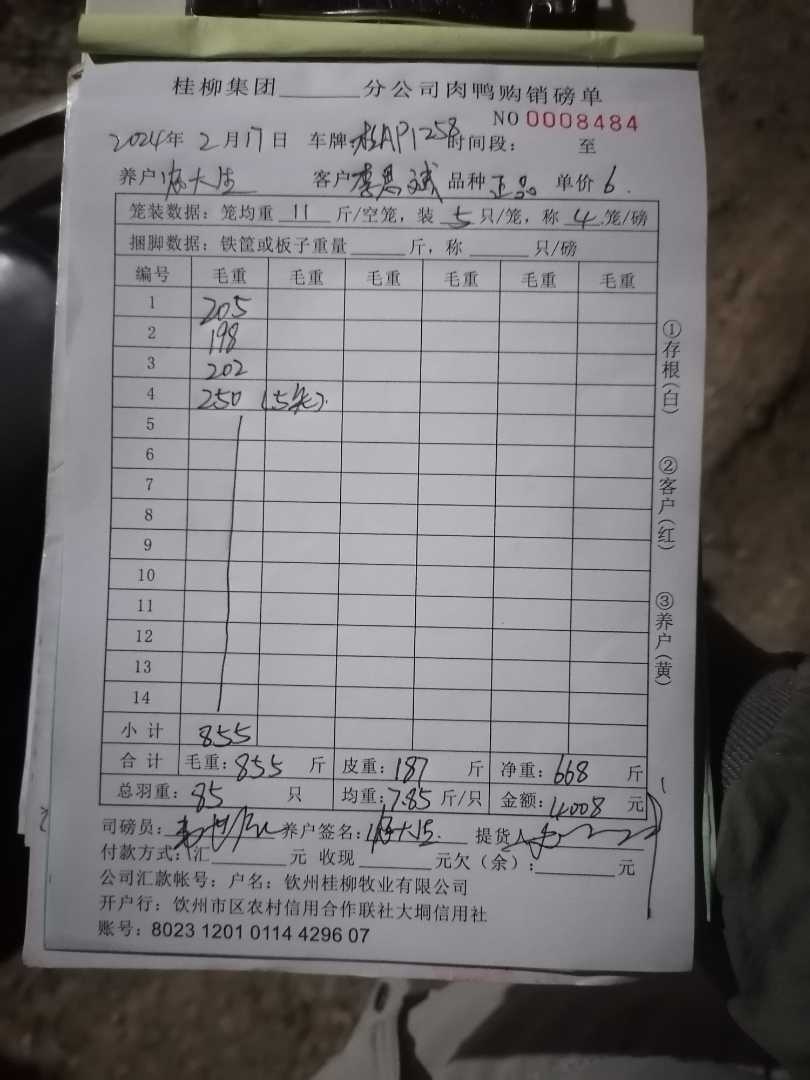 桂柳集团______分公司肉鸭购销磅单
NO 0008484
2024年 2月17日 车牌:桂AP1258 时间段: 至
养户 大生 客户 李思斌 品种 正品 单价 6.
笼装数据: 笼均重 11 斤/空笼, 装 5 只/笼, 称 4 笼/磅
捆脚数据: 铁筐或板子重量______斤, 称______只/磅
编号 毛重 毛重 毛重 毛重 毛重 毛重
1 205
2 198
3 202
4 250 (5笼).
5
6
7
8
9
10
11
12
13
14
小计 855
合计 毛重: 855 斤 皮重: 187 斤 净重: 668 斤
总羽重: 85 只 均重: 7.85 斤/只 金额: 4008 元
司磅员: 养户签名: 大生. 提货人
付款方式: 汇______元 收现______元欠(余):______元
公司汇款帐号: 户名: 钦州桂柳牧业有限公司
开户行: 钦州市区农村信用合作联社大垌信用社
账号: 8023 1201 0114 4296 07
①存根(白)
②客户(红)
③养户(黄)